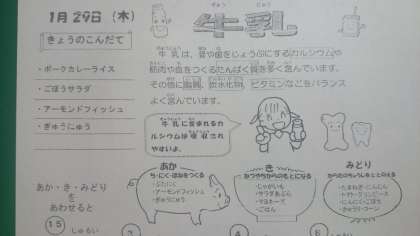 1月29日（木）
ぎゅう にゅう
牛乳
きょうのこんだて
牛乳は、骨や歯をじょうぶにするカルシウムや
筋肉や血をつくるたんぱく質を多く含んでいます。
その他に脂質、炭水化物、ビタミンなどをバランス
よく含んでいます。
・ポークカレーライス
・ごぼうサラダ
・アーモンドフィッシュ
・ぎゅうにゅう
牛乳に含まれるカ
ルシウムは吸収され
やすいよ。
あか・き・みどり
を
あわせると
15
しゅるい
あか
ち・にく・ほねをつくる
・ぶたにく
・アーモンドフィッシュ
・ぎゅうにゅう
き
・じゃがいも
・サラダあぶら
・マヨネーズ
・ごはん
みどり
・たまねぎ・にんじん
・にんにく・ごぼう
・きゅうり・コーン
6
しゅるい